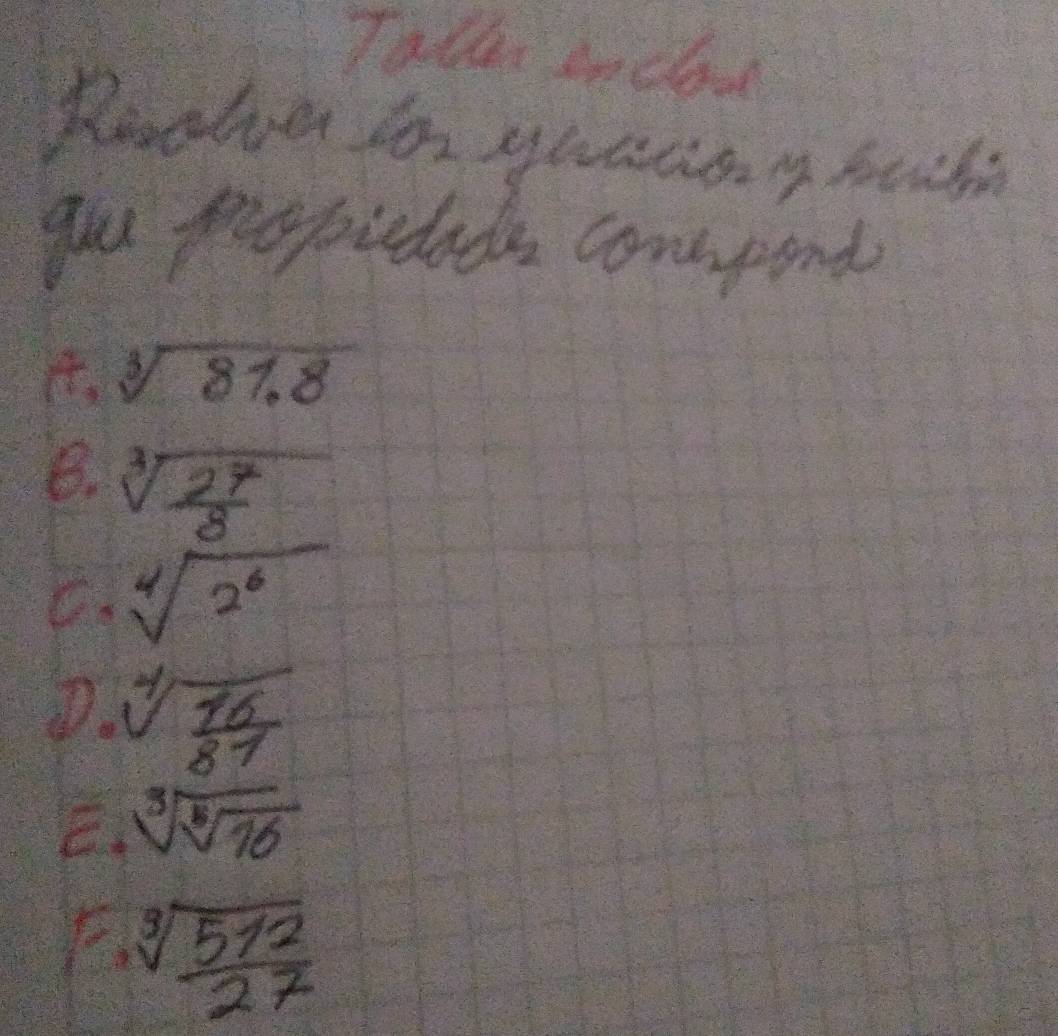 Taller en clase
Resolver los ejercicios y escribir
que propiedades correspond
A. ∛81.8
B. ∛(27/8)
C. ∜2⁶
D. ∜(16/81)
E. ∛(⁵√16)
F. ∛(512/27)